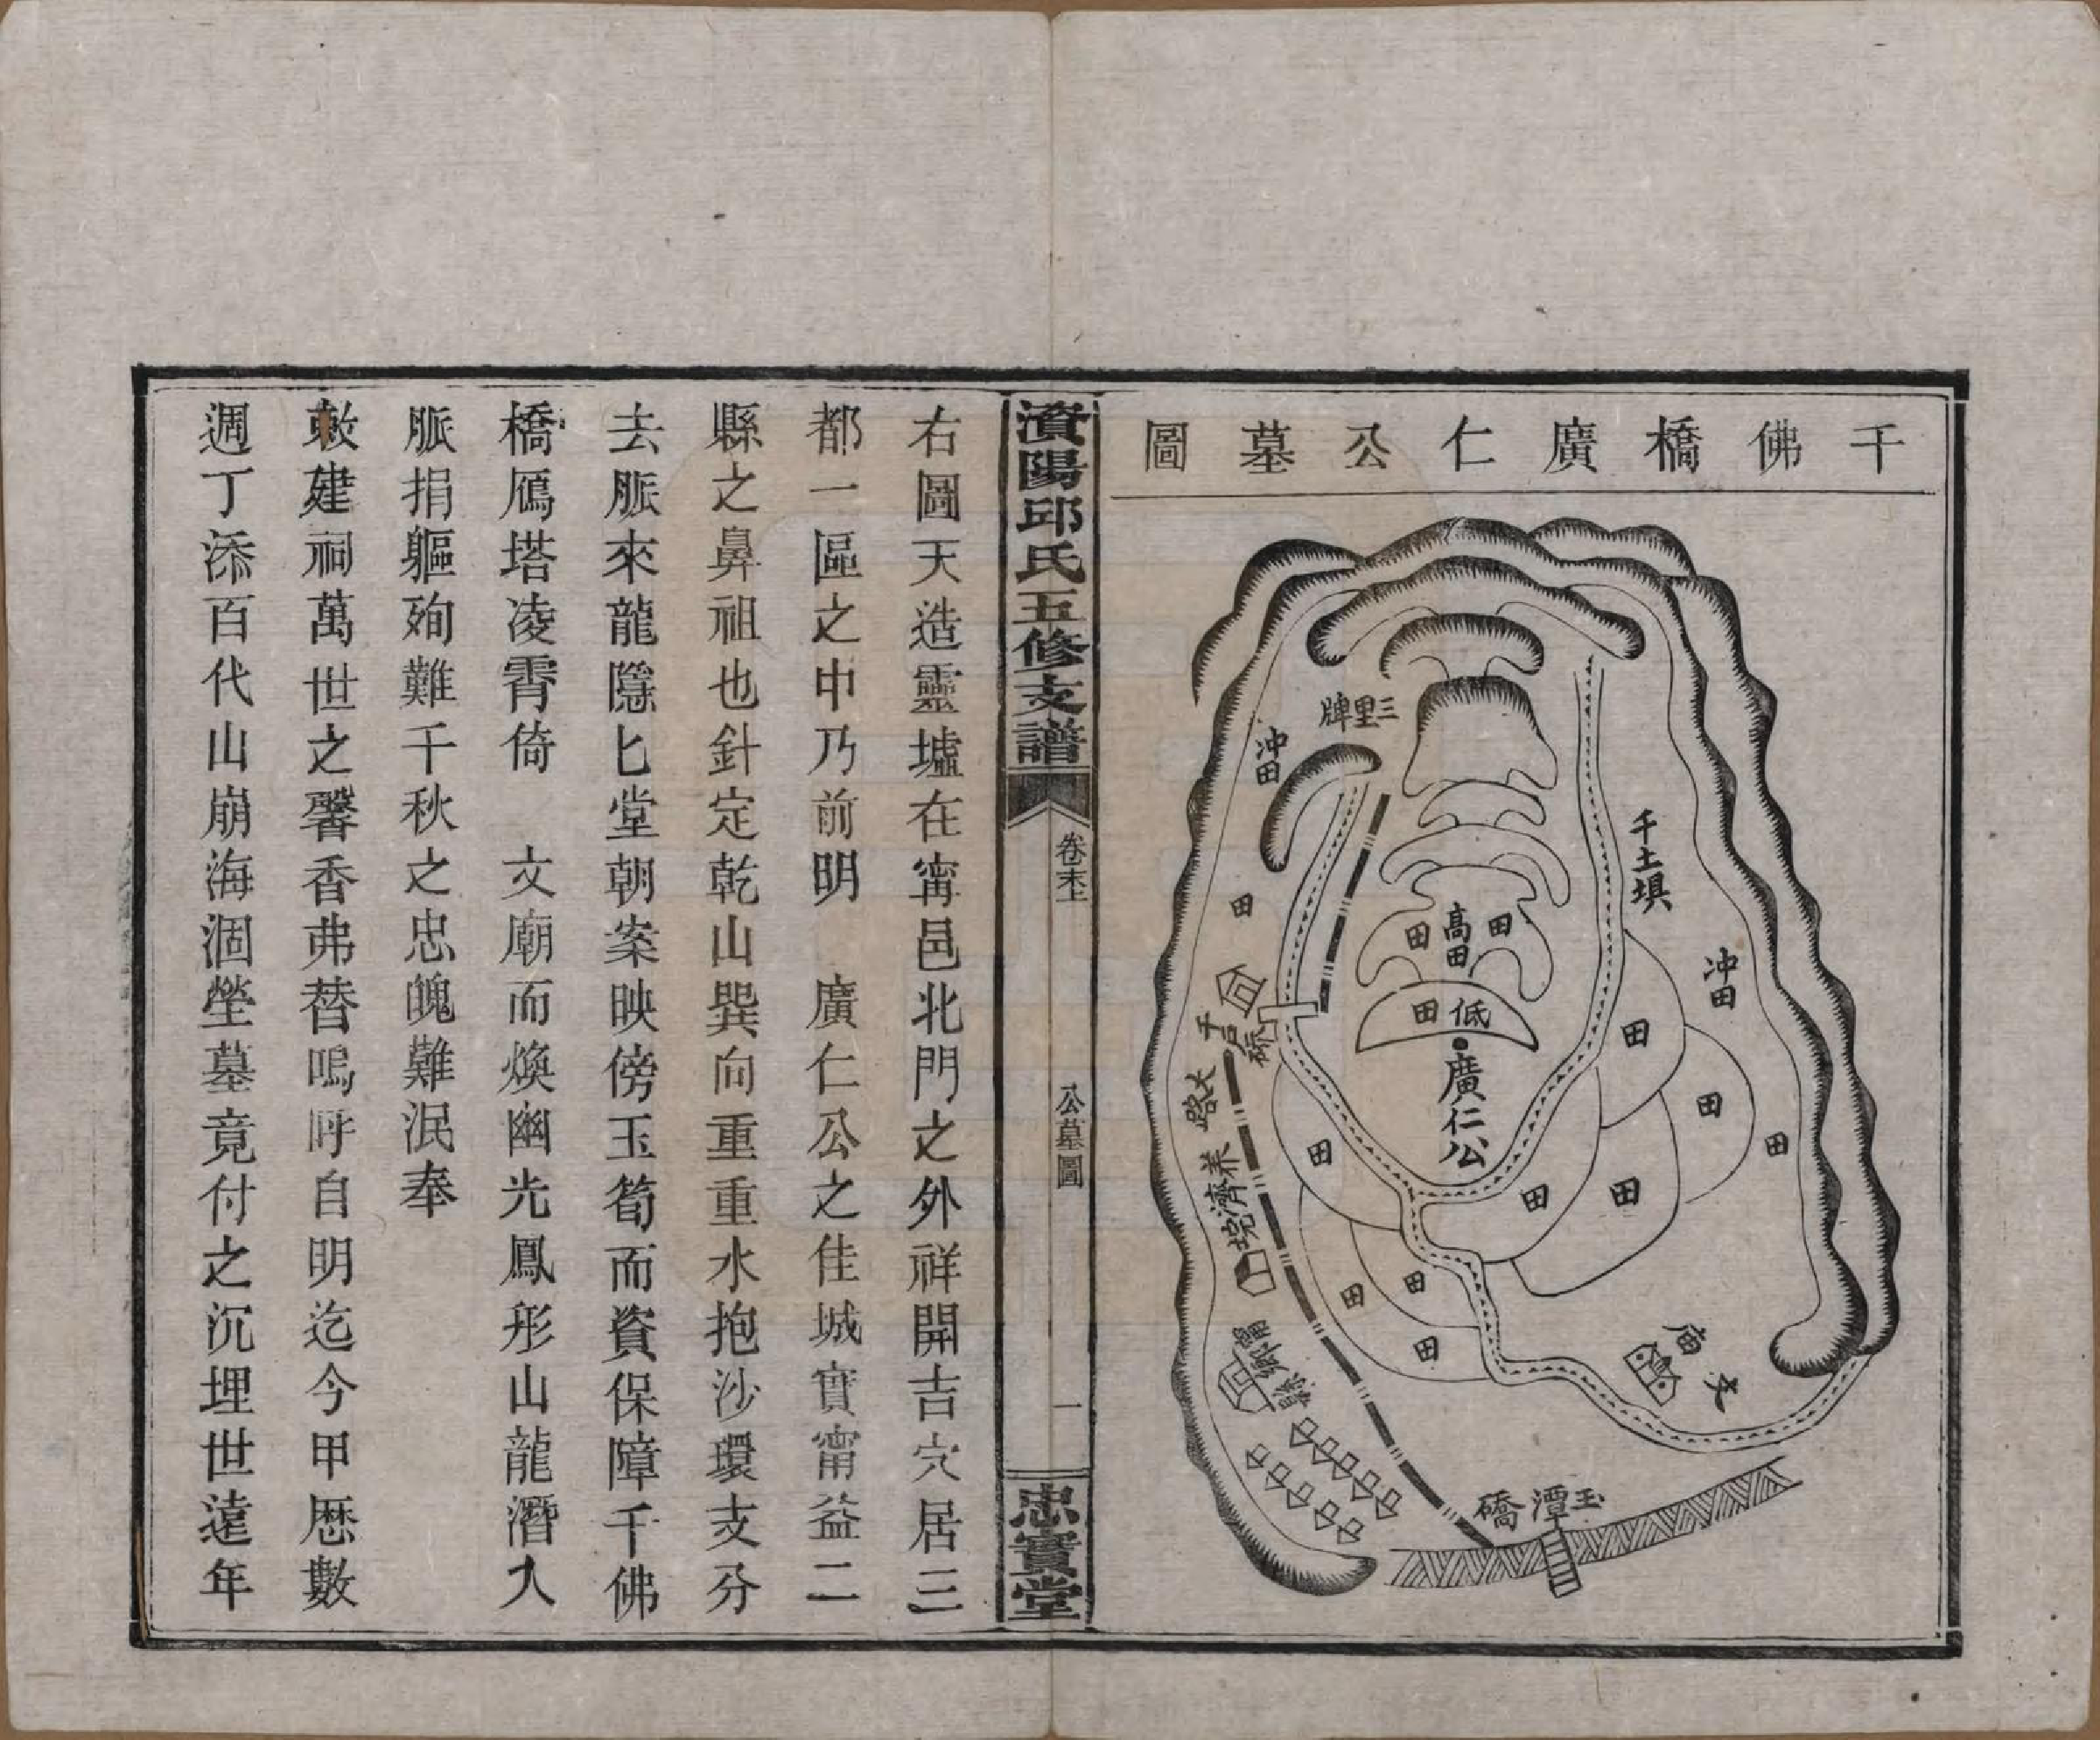 千佛橋廣仁公墓圖
三里牌
沖田
千土塅
沖田
田
田
高田
田
田低
廣仁公
千户橋
大路
养濟院
田
田
田
田
田
田
田
田
田
寗鄉縣
文庙
玉潭礄
資陽邱氏五修支譜
卷末上
公墓圖
一
忠實堂
右圖天造靈墟在甯邑北門之外祥開吉穴居三
都一區之中乃前明 廣仁公之佳城實甯益二
縣之鼻祖也針定乾山巽向重重水抱沙環支分
去脈來龍隱匕堂朝案映傍玉筍而資保障千佛
橋鴈塔凌霄倚 文廟而煥幽光鳳形山龍潛入
脈捐軀殉難千秋之忠魄難泯奉
敕建祠萬世之馨香弗替嗚呼自明迄今甲歷數
週丁添百代山崩海涸塋墓竟付之沉埋世遠年